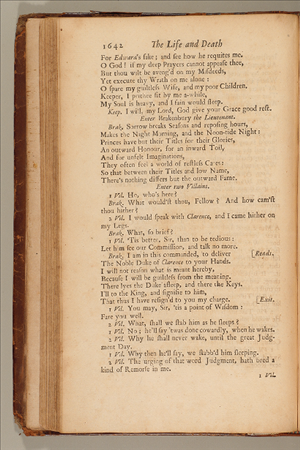 1642 The Life and Death
For Edward's sake; and see how he requites me.
O God! if my deep Prayers cannot appease thee,
But thou wilt be aveng'd on my Misdeeds,
Yet execute thy Wrath on me alone:
O spare my guiltless Wife, and my poor Children.
Keeper, I prithee sit by me a-while,
My Soul is heavy, and I fain would sleep.
Keep. I will, my Lord, God give your Grace good rest.
Enter Brakenbury the Lieutenant.
Brak. Sorrow breaks Seasons and reposing hours,
Makes the Night Morning, and the Noon-tide Night:
Princes have but their Titles for their Glories,
An outward Honour, for an inward Toil,
And for unfelt Imaginations,
They often feel a world of restless Cares:
So that between their Titles and low Name,
There's nothing differs but the outward Fame.
Enter two Villains.
1 Vil. Ho, who's here?
Brak. What would'st thou, Fellow? And how cam'st
thou hither?
2 Vil. I would speak with Clarence, and I came hither on
my Legs.
Brak. What, so brief?
1 Vil. 'Tis better, Sir, than to be tedious:
Let him see our Commission, and talk no more.
Brak. I am in this commanded, to deliver [Reads.
The Noble Duke of Clarence to your Hands.
I will not reason what is meant hereby,
Because I will be guiltless from the meaning.
There lyes the Duke asleep, and there the Keys.
I'll to the King, and signifie to him,
That thus I have resign'd to you my charge. [Exit.
1 Vil. You may, Sir, 'tis a point of Wisdom:
Fare you well.
2 Vil. What, shall we stab him as he sleeps?
1 Vil. No; he'll say 'twas done cowardly, when he wakes.
2 Vil. Why he shall never wake, until the great Judg-
ment Day.
1 Vil. Why then he'll say, we stab'd him sleeping.
2 Vil. The urging of that word Judgment, hath bred a
kind of Remorse in me.
1 Vil.